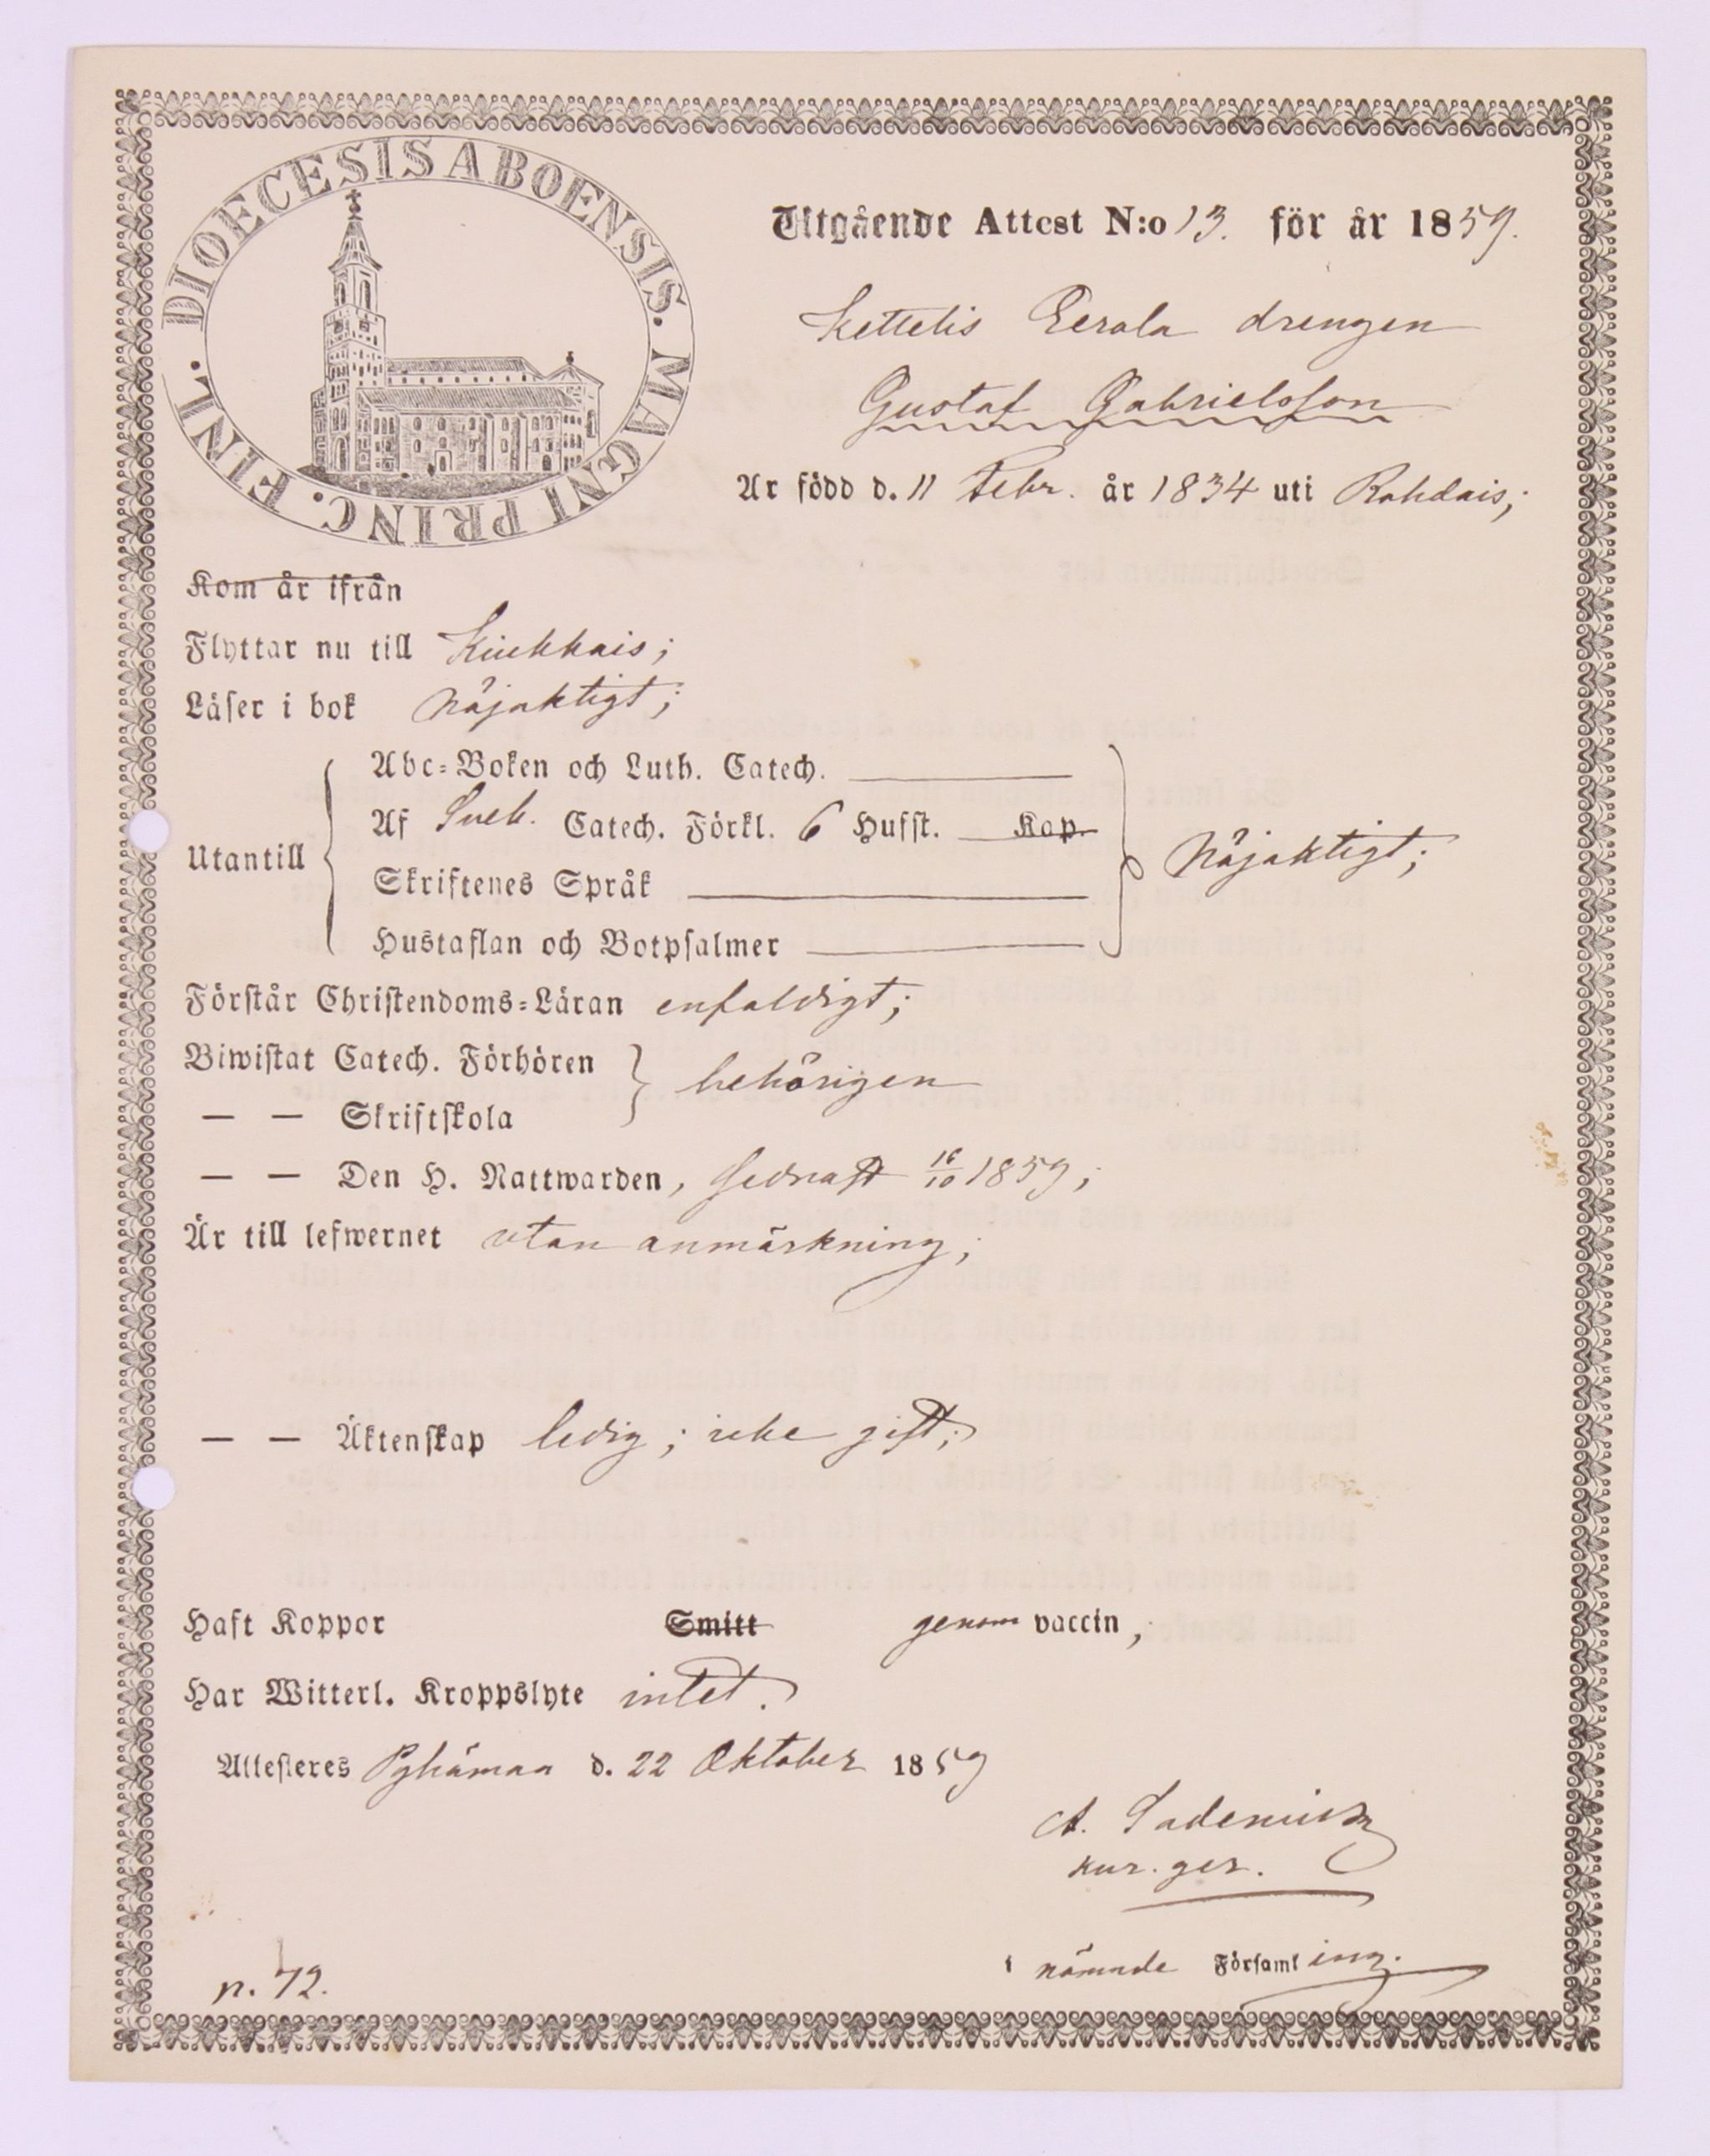 DIOECESIS ABOENSIS. MAGNI PRINC. FINL.
Utgående Attest N:o 13. för år 1859.
Kettelis Eerola drengen
Gustaf Gabrielsson
Är född d. 11 Febr. år 1834 uti Rohdais;
Kom år ifrån
Flyttar nu till Kiukkais;
Läser i bok nöjaktigt;
Abc-Boken och Luth. Catech.
Af Sveb. Catech. Förkl. 6 Hufst. Kap.
Utantill
nöjaktigt;
Skriftenes Språk
Hustaflan och Botpsalmer
Förstår Christendoms-Läran enfaldigt;
Biwistat Catech. Förhören
behörigen
— — Skriftskola
— — Den H. Nattwarden, sednast 16/10 1859;
Är till lefwernet utan anmärkning;
— — Äktenskap ledig; icke gift;
Haft Koppor Smitt genom vaccin,
Har Witterl. Kroppslyte intet.
Attesteres Pyhämaa d. 22 Oktober 1859
A.
kur. ger.
i nämnde Församling.
p. 72.